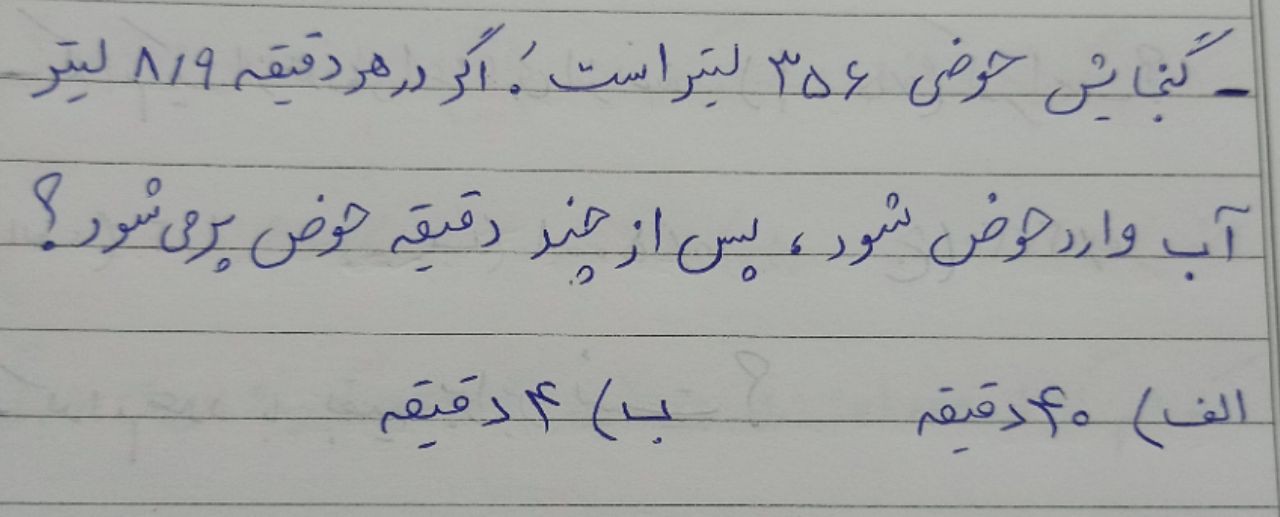 - گنجایش حوضی ۳۵۶ لیتر است. اگر در هر دقیقه ۸/۹ لیتر
آب وارد حوض شود، پس از چند دقیقه حوض پر می‌شود؟
الف) ۴۰ دقیقه ب) ۴ دقیقه